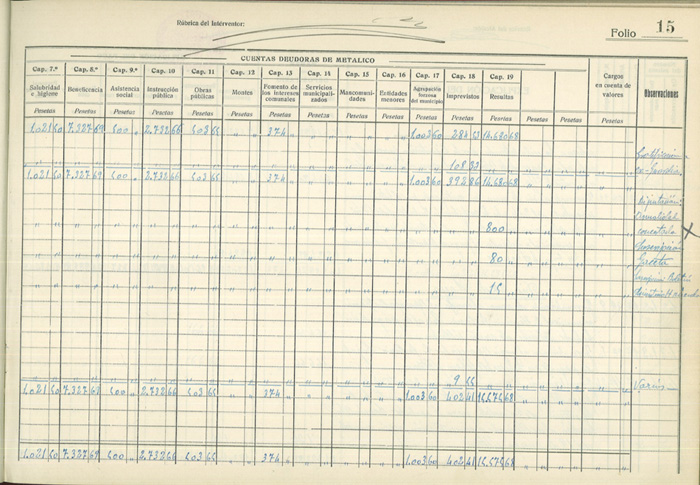 Rúbrica del Interventor:
Folio 15
CUENTAS DEUDORAS DE METALICO
Cap. 7.º Cap. 8.º Cap. 9.º Cap. 10 Cap. 11 Cap. 12 Cap. 13 Cap. 14 Cap. 15 Cap. 16 Cap. 17 Cap. 18 Cap. 19
Salubridad e higiene Beneficencia Asistencia social Instrucción pública Obras públicas Montes Fomento de los intereses comunales Servicios municipalizados Mancomunidades Entidades menores Agrupación forzosa del municipio Imprevistos Resultas Cargos en cuenta de valores Observaciones
Pesetas Pesetas Pesetas Pesetas Pesetas Pesetas Pesetas Pesetas Pesetas Pesetas Pesetas Pesetas Pesetas Pesetas Pesetas Pesetas
1.021 50 7.327 69 500 " 2.732 66 503 65 " " 374 " " " " " " " 1.003 60 284 53 14.680 68
108 33
1.021 50 7.327 69 500 " 2.732 66 503 65 " " 374 " " " " " " " 1.003 60 392 86 14.680 68
800
80 "
15 "
9 55 Varios
1.021 50 7.327 69 500 " 2.732 66 503 65 " " 374 " " " " " " " 1.003 60 402 41 15.575 68
1.021 50 7.327 69 500 " 2.732 66 503 65 " " 374 " " " " " " " 1.003 60 402 41 15.575 68